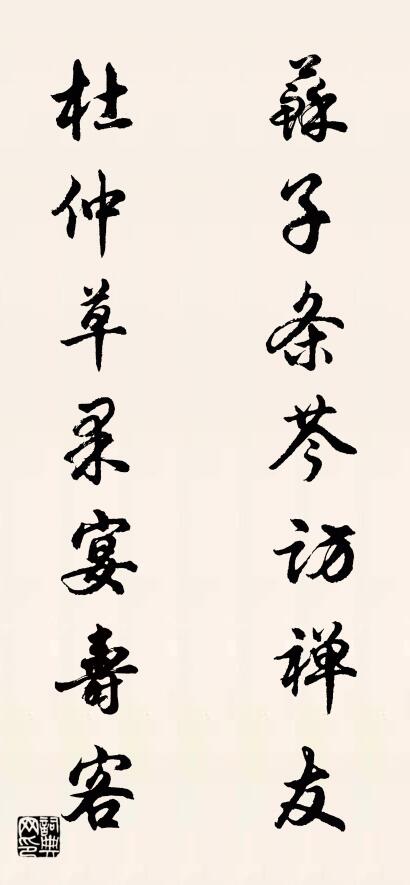 蘇子条芩访禅友
杜仲草果宴壽客
詞典网印